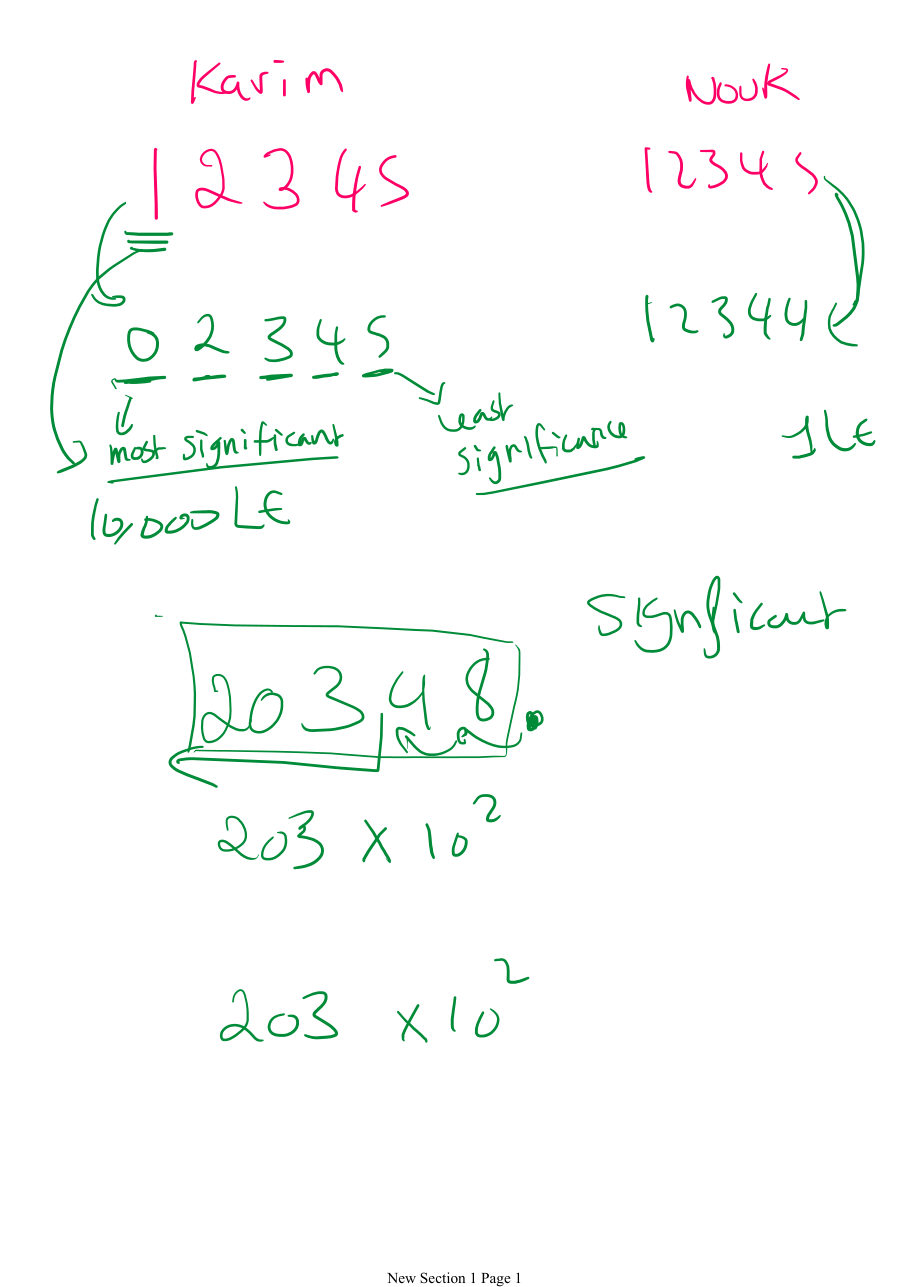 Karim NOUR
1 2 3 4 5 1 2 3 4 5
0 2 3 4 5 1 2 3 4 4
most significant least significance 1 LE
10,000 LE
Significant
203 48.
203 x 10²
203 x 10²
New Section 1 Page 1